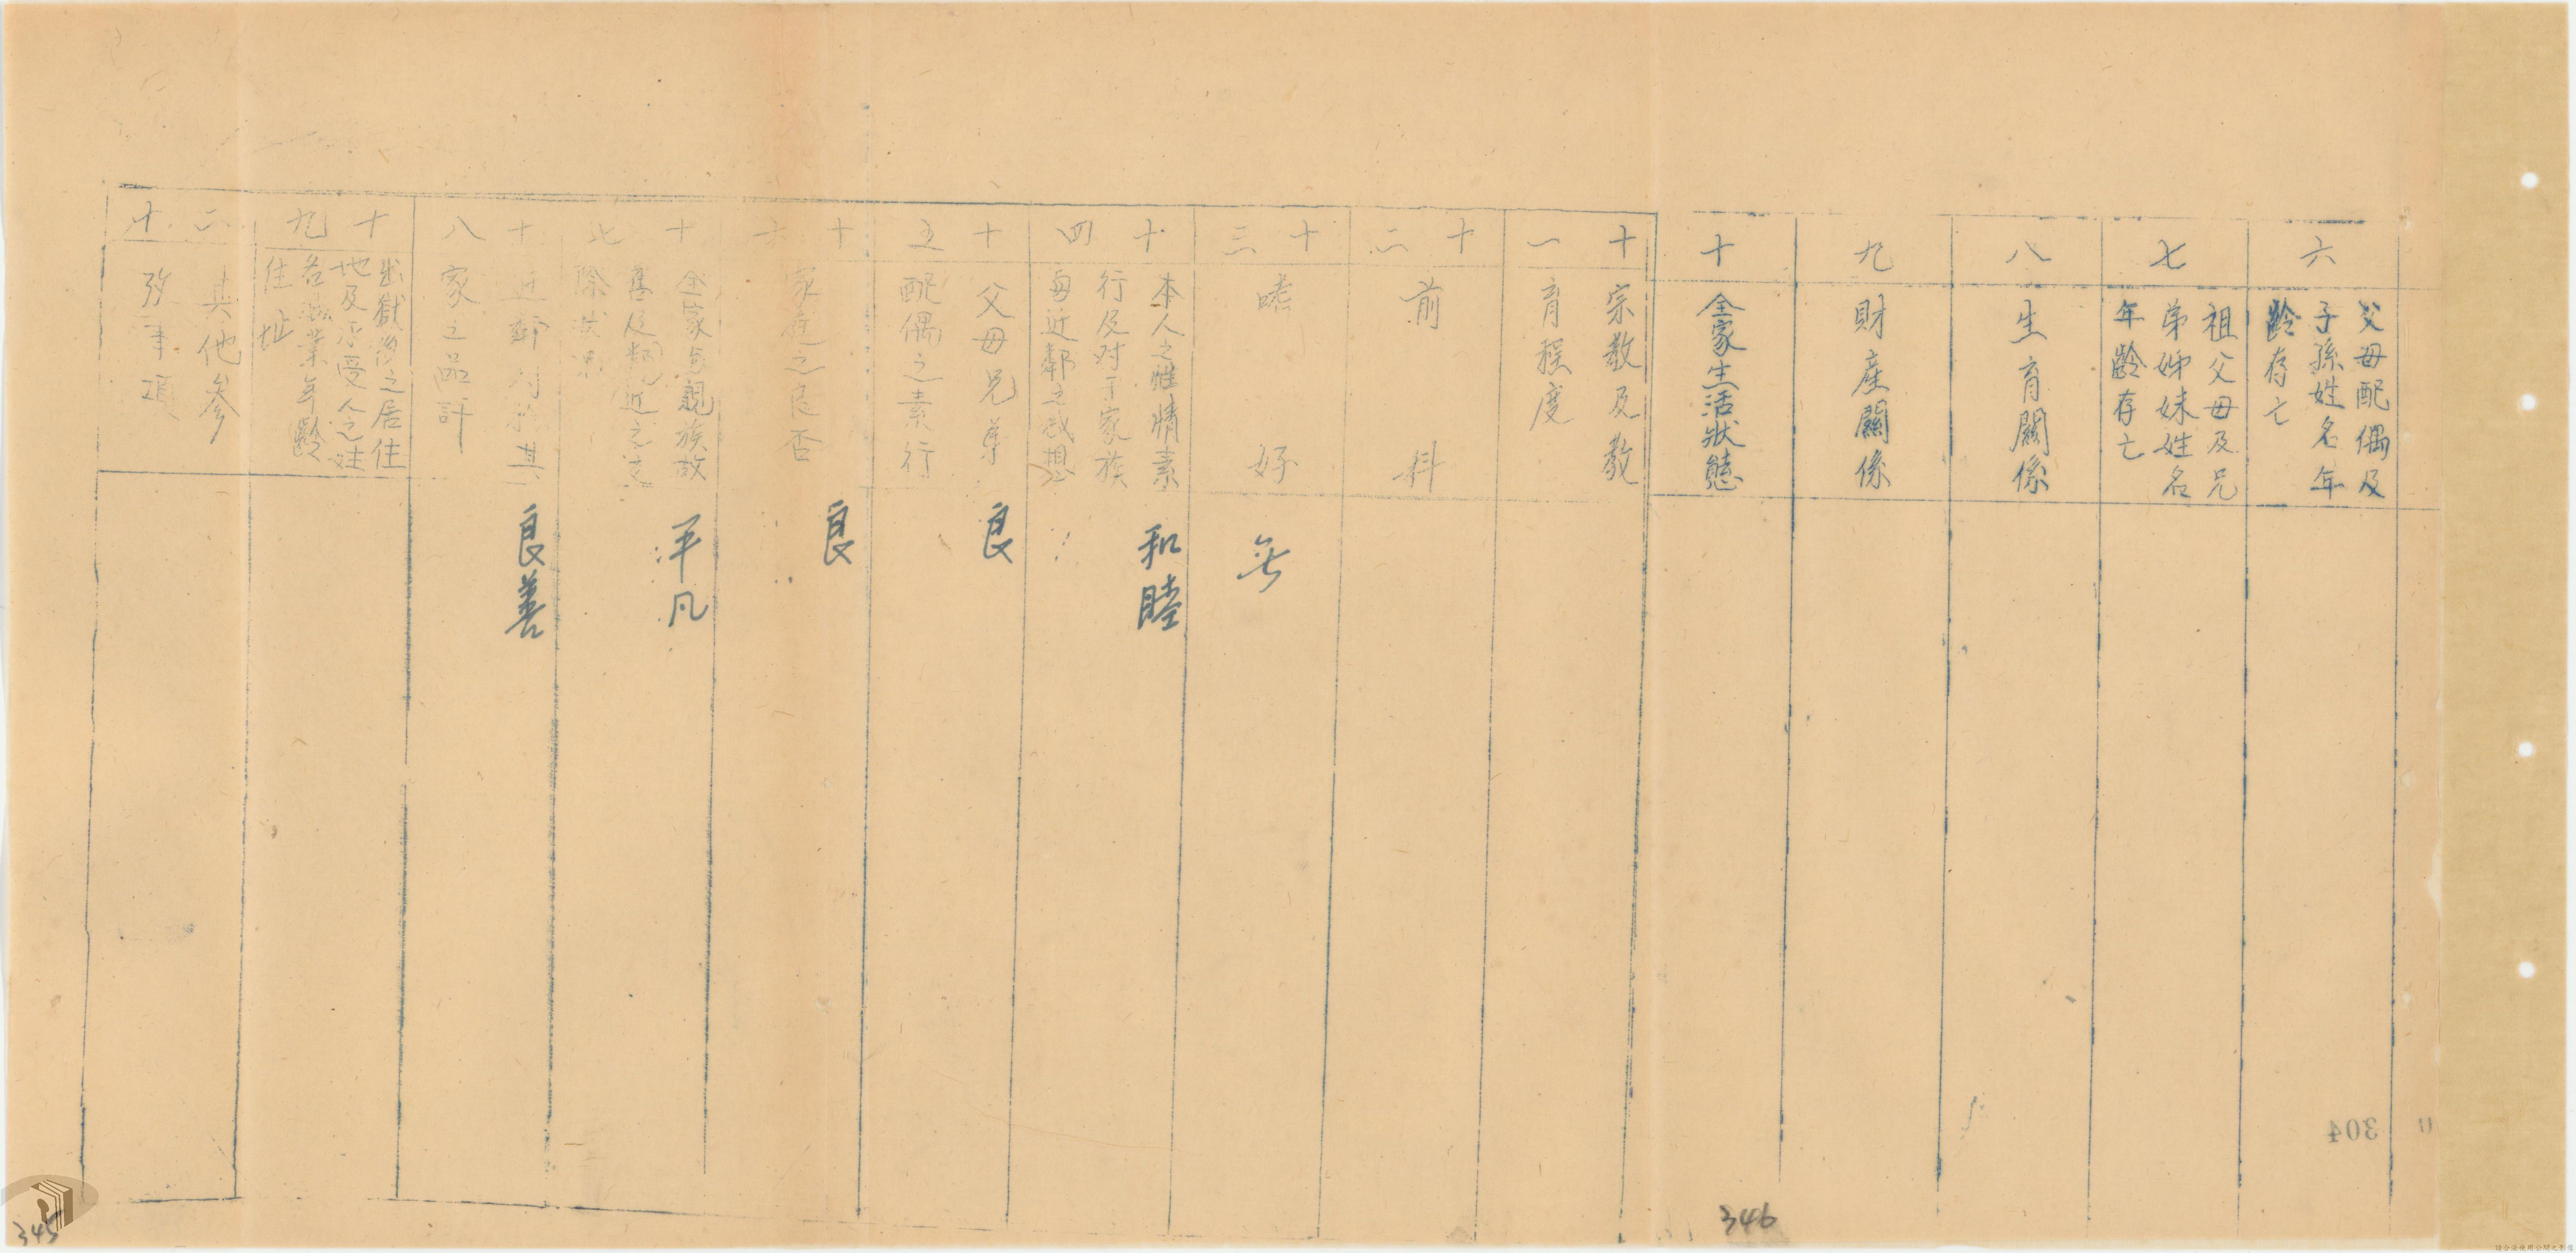 六
父母配偶及
子孫姓名年
齡存亡
七
祖父母及兄
弟姊妹姓名
年齡存亡
八
生育關係
九
財產關係
十
全家生活狀態
十一
宗教及教
育程度
十二
前科
十三
嗜好
無
十四
本人之性情素
行及对于家族
與近鄰之感想
和睦
十五
父母兄弟
配偶之素行
良
十六
家庭之良否
良
十七
全家与親族故
舊及鄰近之交
際狀況
平凡
十八
近鄰对於其
家之品評
良善
十九
出獄後之居住
地及承受人之姓
名職業年齡
住址
二十
其他參
攷事項
304
346
345